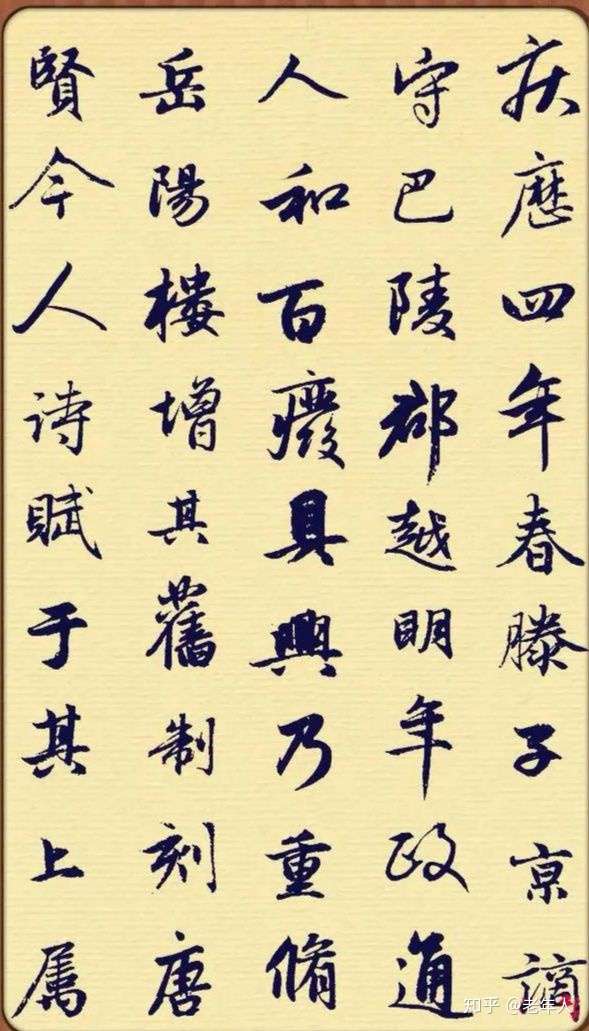 庆歷四年春滕子京謫
守巴陵郡越明年政通
人和百癈具興乃重脩
岳陽樓增其舊制刻唐
賢今人诗賦于其上属
知乎 @老年人